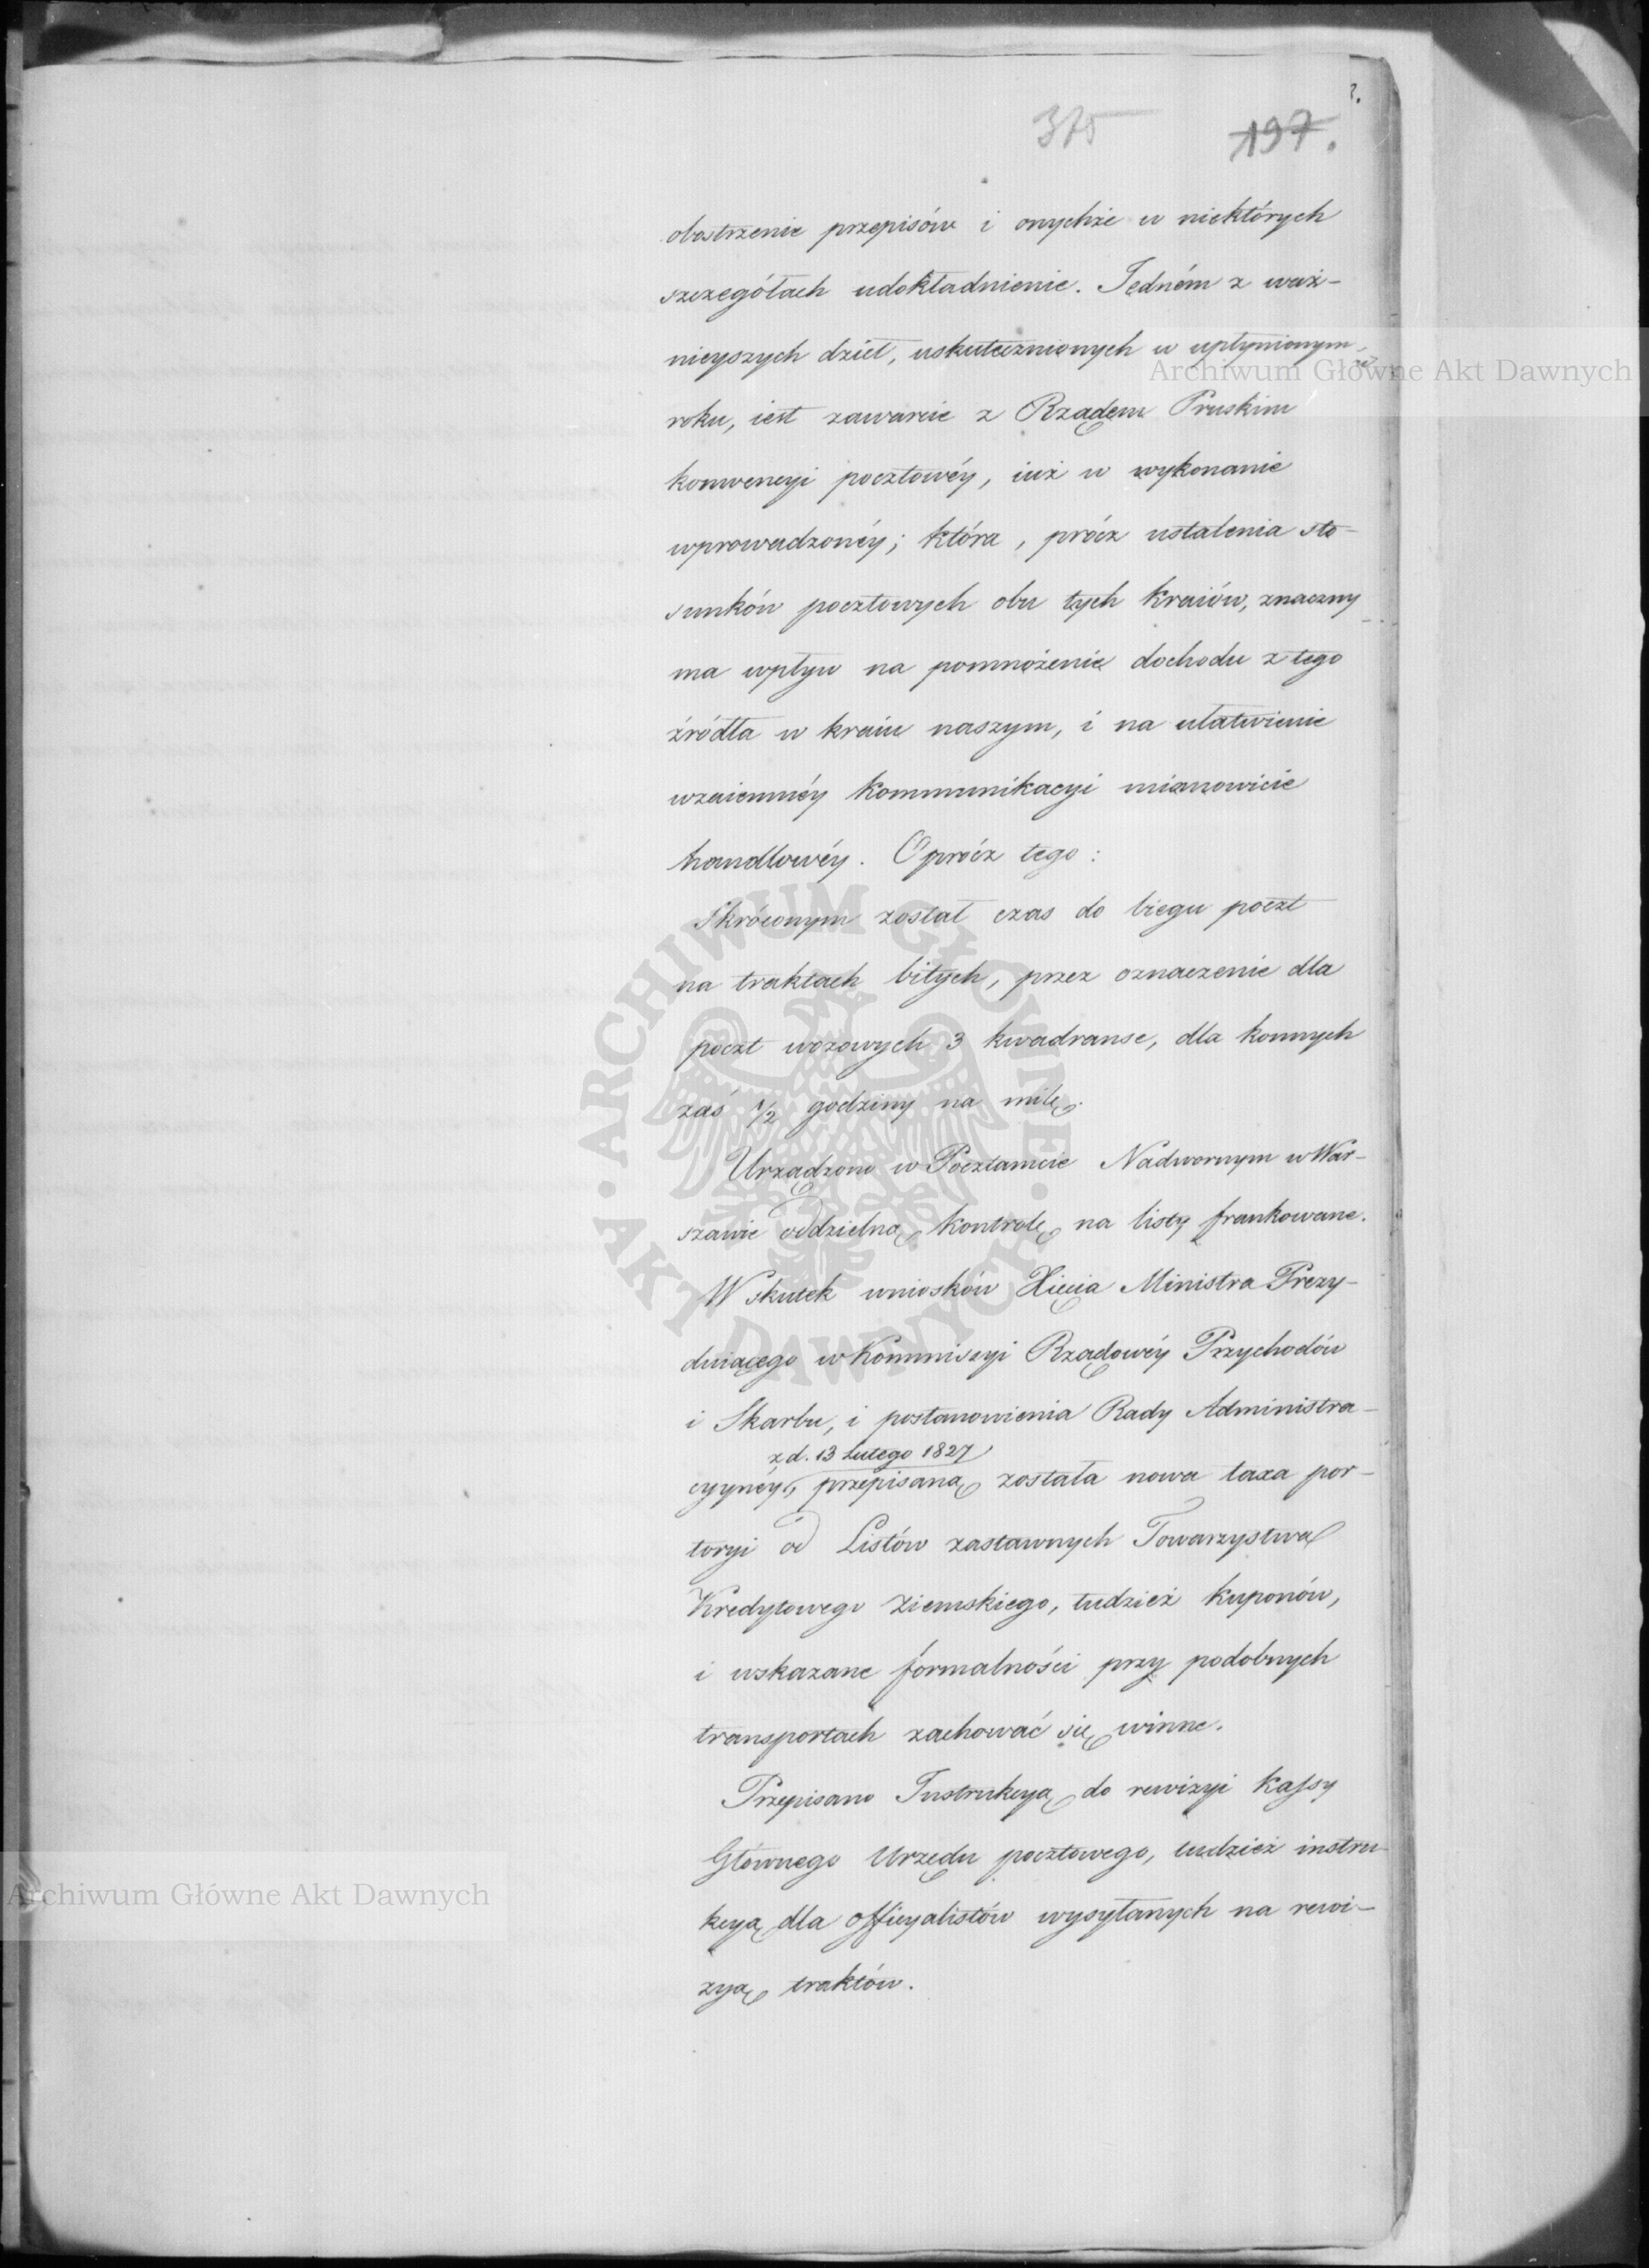 375 197.
obostrzenie przepisów i onychże w niektórych
szczegółach udokładnienie. Jedném z waż-
nieyszych dzieł, uskutecznionych w upłynionym
Archiwum Główne Akt Dawnych
roku, iest zawarcie z Rządem Pruskim
konwencyi pocztowéy, iuż w wykonanie
wprowadzonéy; która, prócz ustalenia sto-
sunków pocztowych obu tych kraiów, znaczny
ma wpływ na pomnożenie dochodu z tego
źródła w kraiu naszym, i na ułatwienie
wzaiemnéy kommunikacyi mianowicie
handlowéy. Oprócz tego:
Skróconym został czas do biegu poczt
na traktach bitych, przez oznaczenie dla
poczt wozowych 3 kwadranse, dla konnych
zaś 1/2 godziny na milę.
Urządzono w Pocztamcie Nadwornym w War-
szawie oddzielną kontrolę na listy frankowane.
W skutek wniosków Xięcia Ministra Prezy-
duiącego w Kommissyi Rządowéy Przychodów
i Skarbu, i postanowienia Rady Administra-
z d. 13 Lutego 1827
cyynéy, przepisaną została nowa taxa por-
toryi od Listów zastawnych Towarzystwa
Kredytowego Ziemskiego, tudzież kuponów,
i wskazane formalności przy podobnych
transportach zachować się winne.
Przepisano Instrukcyą do rewizyi kassy
Głównego Urzędu pocztowego, tudzież instru-
kcyą dla officyalistów wysyłanych na rewi-
zyą traktów.
Archiwum Główne Akt Dawnych
ARCHIWUM GŁÓWNE AKT DAWNYCH